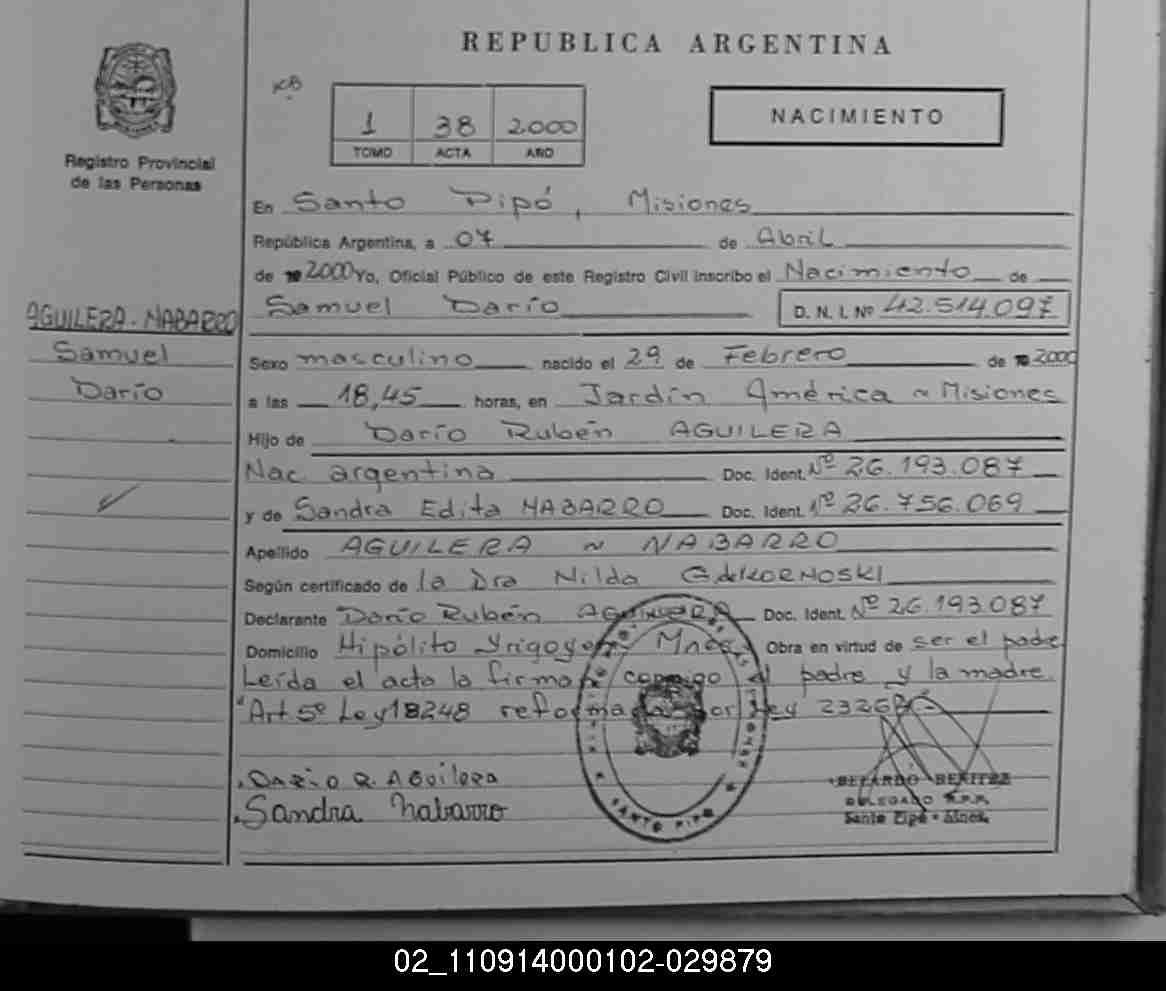 REPUBLICA ARGENTINA
Registro Provincial
de las Personas
1 38 2000
TOMO ACTA AÑO
NACIMIENTO
En Santo Pipó, Misiones
República Argentina, a 07 de Abril
de 2000 Yo, Oficial Público de este Registro Civil inscribo el Nacimiento de
Samuel Darío D. N. I. Nº 42.514.097
AGUILERA-NABARRO
Samuel
Darío
Sexo masculino nacido el 29 de Febrero de 2000
a las 18,45 horas, en Jardín América ~ Misiones
Hijo de Darío Rubén AGUILERA
Nac. argentina Doc. Ident. Nº 26.193.087
y de Sandra Edita NABARRO Doc. Ident. Nº 26.756.069
Apellido AGUILERA ~ NABARRO
Según certificado de la Dra Nilda
Declarante Darío Rubén AGUILERA Doc. Ident. Nº 26.193.087
Domicilio Hipólito Yrigoyen Mnes. Obra en virtud de ser el padre
Leída el acta la firman conmigo el padre y la madre.
"Art 5º Ley 18248 reformada por Ley
DARIO R. AGUILERA
Sandra Nabarro
BENITEZ
DELEGADO R.P.P.
Santo Pipó - Mnes.
SANTO PIPO
02_110914000102-029879